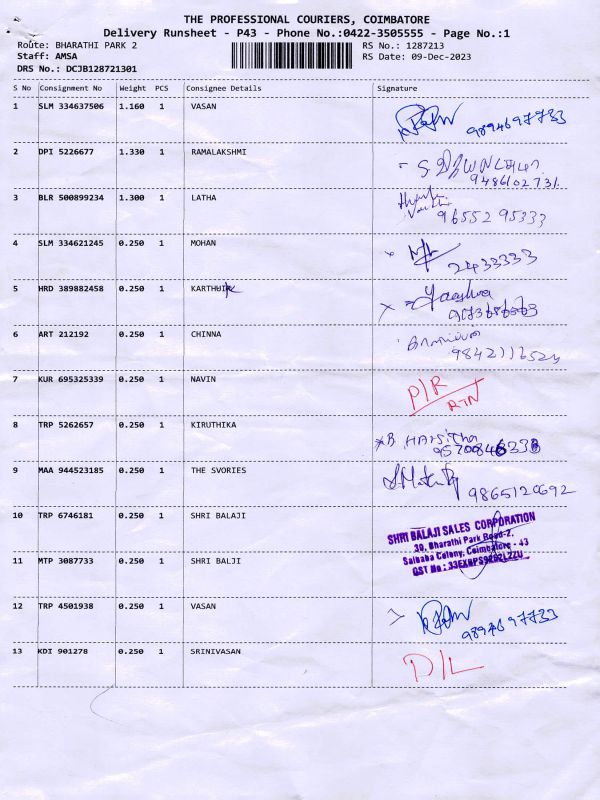 THE PROFESSIONAL COURIERS, COIMBATORE
Delivery Runsheet - P43 - Phone No.:0422-3505555 - Page No.:1
Route: BHARATHI PARK 2 RS No.: 1287213
Staff: AMSA RS Date: 09-Dec-2023
DRS No.: DCJB128721301
S No Consignment No Weight PCS Consignee Details Signature
1 SLM 334637506 1.160 1 VASAN
9894697733
2 DPI 5226677 1.330 1 RAMALAKSHMI
9486102731
3 BLR 500899234 1.300 1 LATHA
9655295333
4 SLM 334621245 0.250 1 MOHAN
2433333
5 HRD 389882458 0.250 1 KARTHUIK
6 ART 212192 0.250 1 CHINNA
7 KUR 695325339 0.250 1 NAVIN P/R
RTN
8 TRP 5262657 0.250 1 KIRUTHIKA B HARSITHA
9 MAA 944523185 0.250 1 THE SVORIES
9865120692
10 TRP 6746181 0.250 1 SHRI BALAJI
SHRI BALAJI SALES CORPORATION
30, Bharathi Park Road-2,
Saibaba Colony, Coimbatore - 43
GST No :
11 MTP 3087733 0.250 1 SHRI BALJI
12 TRP 4501938 0.250 1 VASAN
9894697733
13 KDI 901278 0.250 1 SRINIVASAN D/L